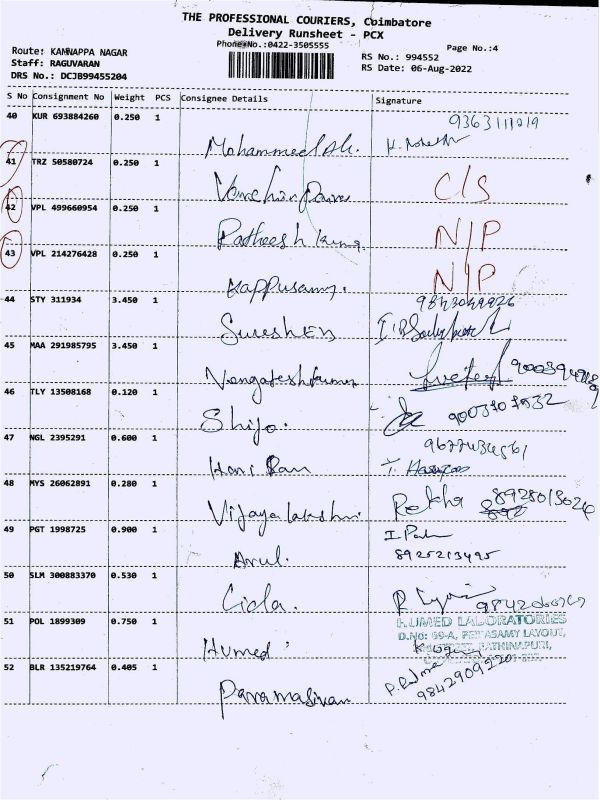 THE PROFESSIONAL COURIERS, Coimbatore
Delivery Runsheet - PCX
Phone No.:0422-3505555
Page No.:4
Route: KANNAPPA NAGAR
Staff: RAGUVARAN
DRS No.: DCJB99455204
RS No.: 994552
RS Date: 06-Aug-2022
S No Consignment No Weight PCS Consignee Details Signature
40 KUR 693884260 0.250 1 9363111019
Mohammed Ali.
41 TRZ 50580724 0.250 1 C/S
42 VPL 499660954 0.250 1 N/P
Ratheesh Kumar
43 VPL 214276428 0.250 1 N/P
Kappusamy.
44 STY 311934 3.450 1
Suresh
45 MAA 291985795 3.450 1
46 TLY 13508168 0.120 1
Shijo.
47 NGL 2395291 0.600 1
Hari Ran
48 MYS 26062891 0.280 1
Vijayalakshmi Rekha 8928013026
49 PGT 1998725 0.900 1
Arul. 8925213495
50 SLM 300883370 0.530 1
51 POL 1899309 0.750 1 HUMED LABORATORIES
D.No: 69-A, PERIASAMY LAYOUT,
RATHINAPURI,
Humed
52 BLR 135219764 0.405 1
Paramasivam